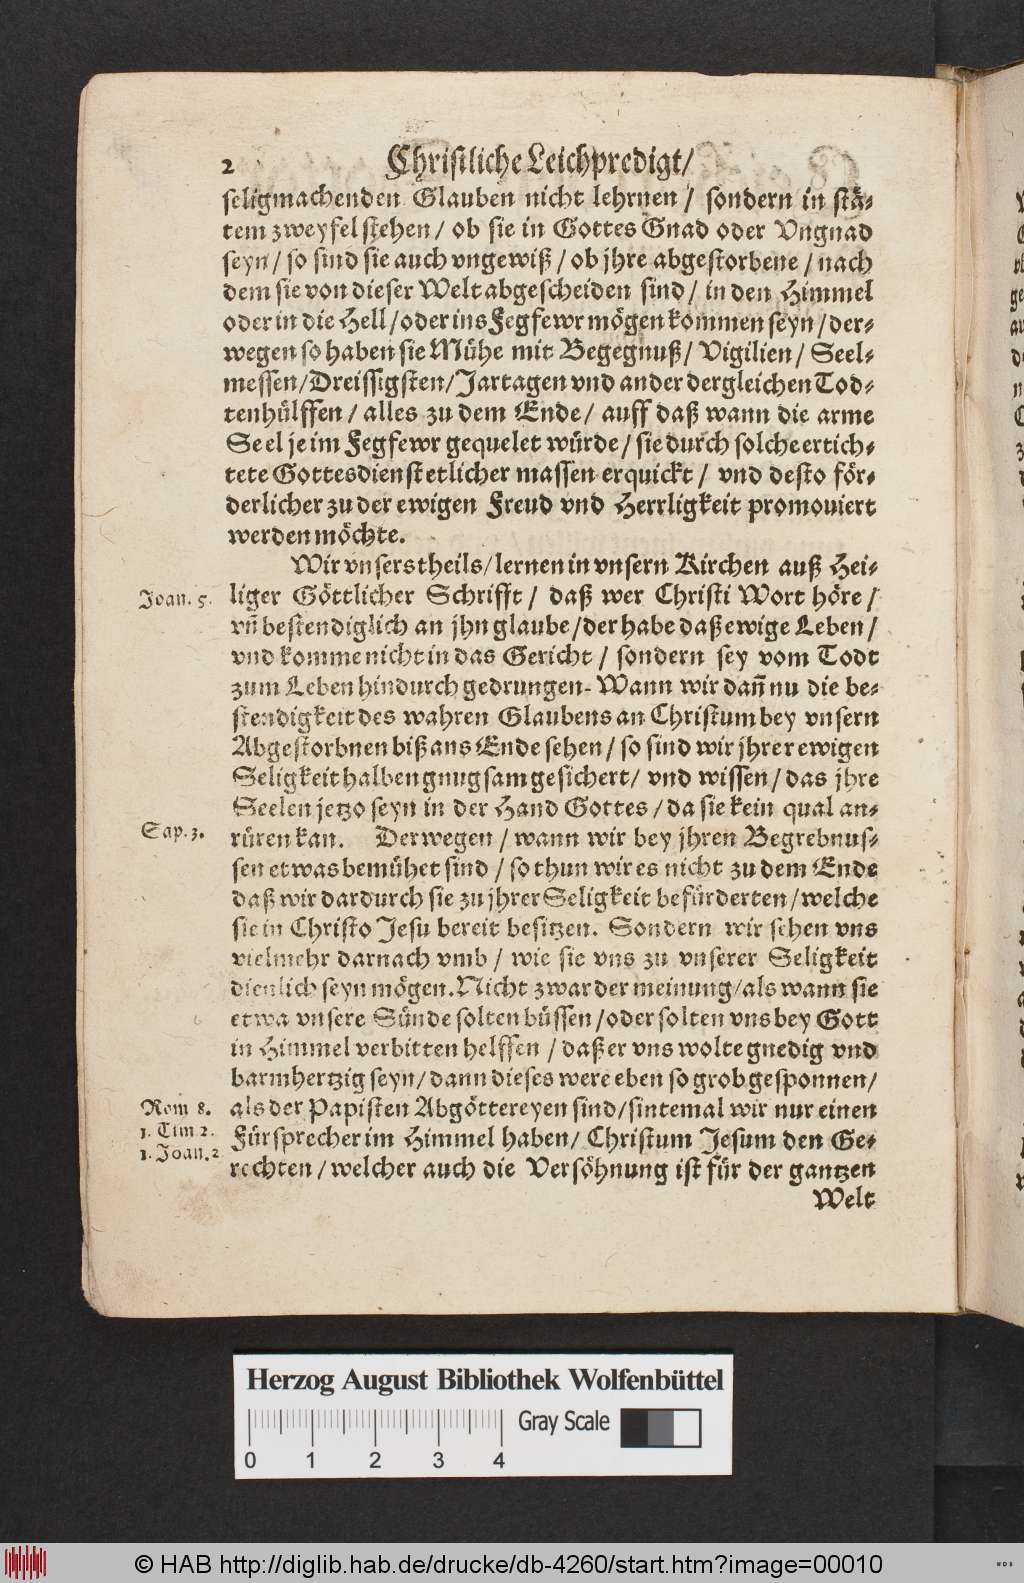 2 Christliche Leichpredigt/
seligmachenden Glauben nicht lehrnen / sondern in stä-
tem zweyfel stehen / ob sie in Gottes Gnad oder Vngnad
seyn / so sind sie auch vngewiß / ob jhre abgestorbene / nach
dem sie von dieser Welt abgescheiden sind / in den Himmel
oder in die Hell / oder ins Fegfewr mögen kommen seyn / der-
wegen so haben sie Mühe mit Begegnuß / Vigilien / Seel-
messen / Dreissigsten / Jartagen vnd ander dergleichen Tod-
tenhülffen / alles zu dem Ende / auff daß wann die arme
Seel je im Fegfewr gequelet würde / sie durch solche ertich-
tete Gottesdienst etlicher massen erquickt / vnd desto för-
derlicher zu der ewigen Freud vnd Herrligkeit promouiert
werden möchte.
Wir vnserstheils / lernen in vnsern Kirchen auß Hei-
Joan. 5. liger Göttlicher Schrifft / daß wer Christi Wort höre /
vñ bestendiglich an jhn glaube / der habe daß ewige Leben /
vnd komme nicht in das Gericht / sondern sey vom Todt
zum Leben hindurch gedrungen. Wann wir dañ nu die be-
stendigkeit des wahren Glaubens an Christum bey vnsern
Abgestorbnen biß ans Ende sehen / so sind wir jhrer ewigen
Seligkeit halben gnugsam gesichert / vnd wissen / das jhre
Seelen jetzo seyn in der Hand Gottes / da sie kein qual an-
Sap. 3. rüren kan. Derwegen / wann wir bey jhren Begrebnus-
sen etwas bemühet sind / so thun wir es nicht zu dem Ende
daß wir dardurch sie zu jhrer Seligkeit befürderten / welche
sie in Christo Jesu bereit besitzen. Sondern wir sehen vns
vielmehr darnach vmb / wie sie vns zu vnserer Seligkeit
dienlich seyn mögen. Nicht zwar der meinung / als wann sie
etwa vnsere Sünde solten büssen / oder solten vns bey Gott
in Himmel verbitten helffen / daß er vns wolte gnedig vnd
barmhertzig seyn / dann dieses were eben so grob gesponnen /
Rom 8. als der Papisten Abgöttereyen sind / sintemal wir nur einen
1. Tim 2. Fürsprecher im Himmel haben / Christum Jesum den Ge-
1. Joan. 2 rechten / welcher auch die Versöhnung ist für der gantzen
Welt
Herzog August Bibliothek Wolfenbüttel
Gray Scale
0 1 2 3 4
© HAB http://diglib.hab.de/drucke/db-4260/start.htm?image=00010